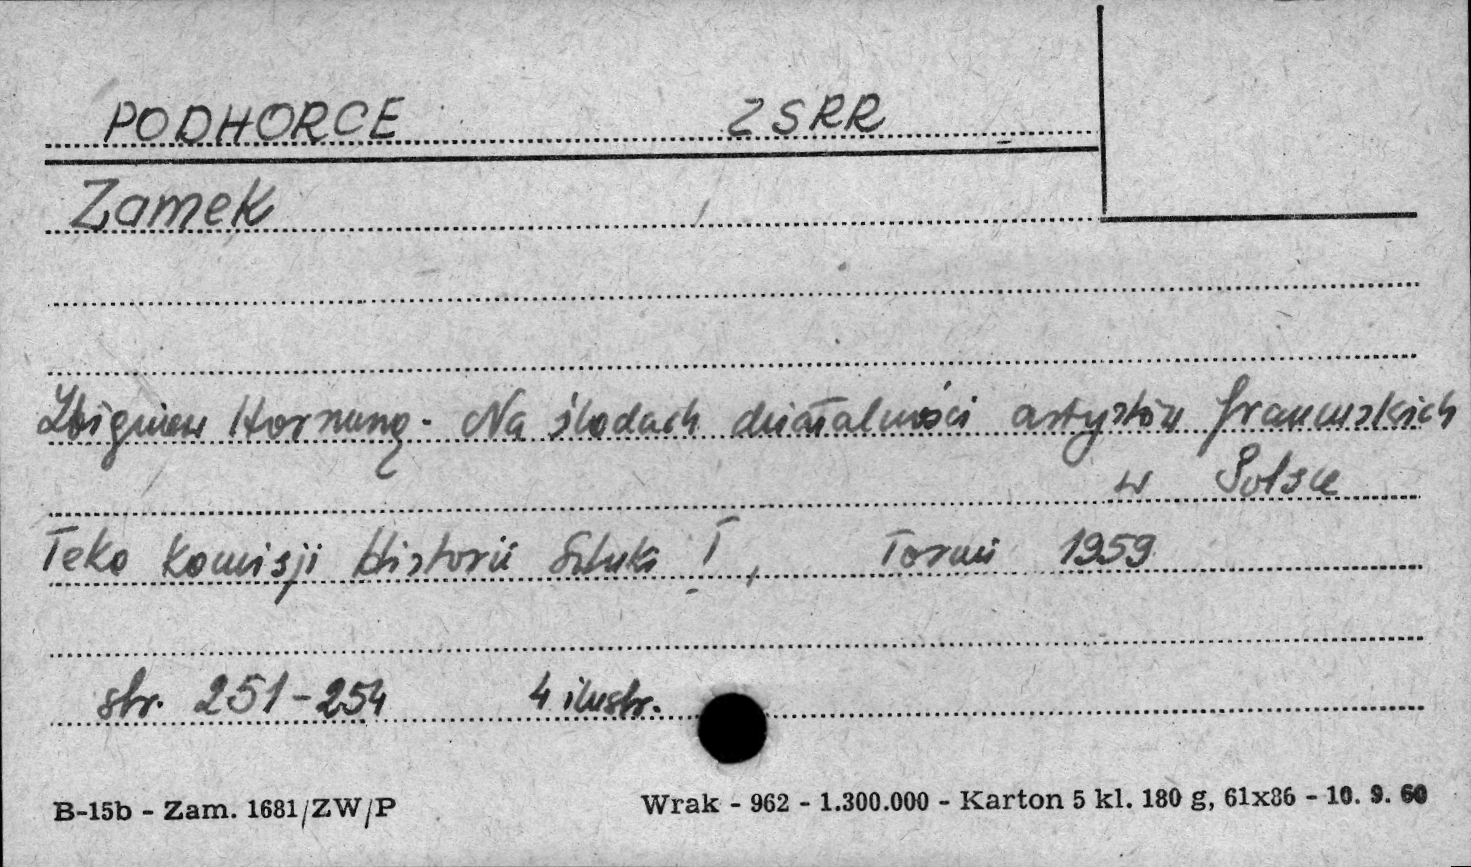 PODHORCE ZSRR
Zamek
Zbigniew Hornung. Na śladach działalności artystów francuskich
w Polsce
Teka Komisji Historii Sztuki I, Toruń 1959
str. 251-254 4 ilustr.
B-15b - Zam. 1681/ZW/P
Wrak - 962 - 1.300.000 - Karton 5 kl. 180 g, 61x86 - 10. 9. 60